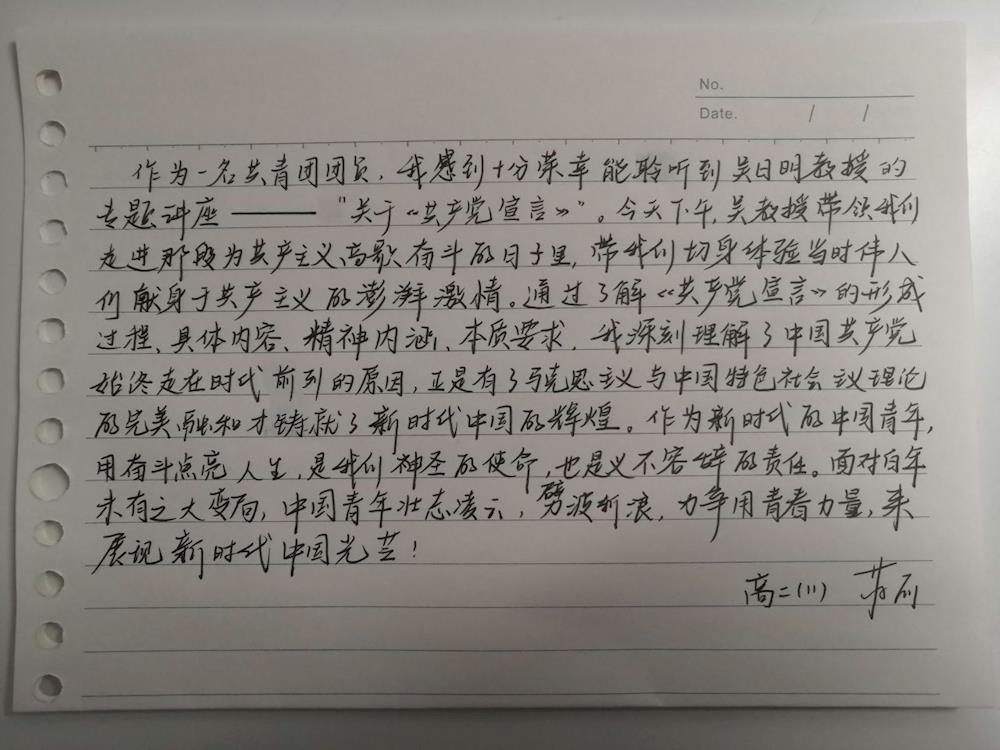 No.
Date. / /
作为一名共青团团员，我感到十分荣幸能聆听到吴日明教授的
专题讲座——“关于《共产党宣言》”。今天下午，吴教授带领我们
走进那段为共产主义高歌奋斗的日子里，带我们切身体验当时伟人
们献身于共产主义的澎湃激情。通过了解《共产党宣言》的形成
过程、具体内容、精神内涵、本质要求，我深刻理解了中国共产党
始终走在时代前列的原因，正是有了马克思主义与中国特色社会主义理论
的完美融和才铸就了新时代中国的辉煌。作为新时代的中国青年，
用奋斗点亮人生，是我们神圣的使命，也是义不容辞的责任。面对百年
未有之大变局，中国青年壮志凌云，劈波斩浪，力争用青春力量，来
展现新时代中国光芒！
高二(11)